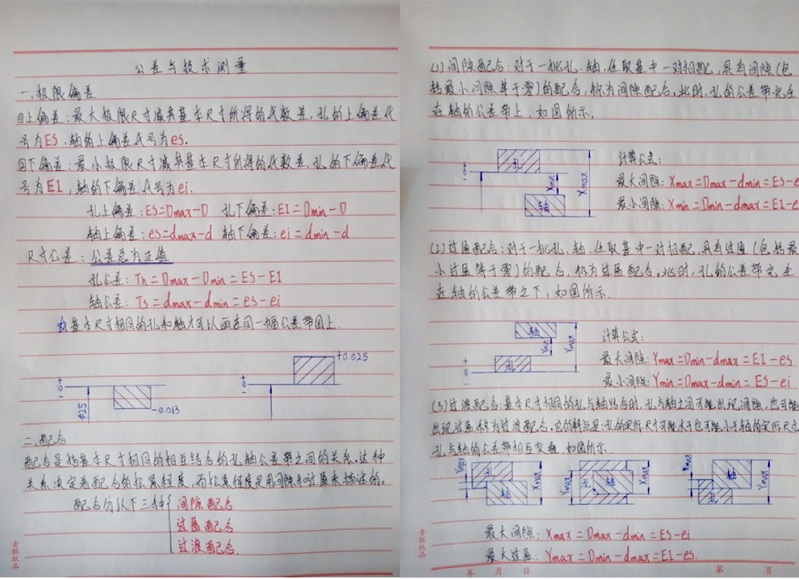 公差与技术测量
一、极限偏差
①上偏差：最大极限尺寸减其基本尺寸所得的代数差，孔的上偏差代
号为ES，轴的上偏差代号为es。
②下偏差：最小极限尺寸减其基本尺寸所得的代数差，孔的下偏差代
号为EI，轴的下偏差代号为ei.
孔上偏差：ES=Dmax-D 孔下偏差：EI=Dmin-D
轴上偏差：es=dmax-d 轴下偏差：ei=dmin-d
尺寸公差：公差恒为正值
孔公差：Th=Dmax-Dmin=ES-EI
轴公差：Ts=dmax-dmin=es-ei
基本尺寸相同的孔和轴才可以画在同一幅公差带图上.
+0.025
+
0
-
+
0
-
ϕ25
-0.013
二、配合
配合是指基本尺寸相同的相互结合的孔轴公差带之间的关系，这种
关系决定着配合的松紧程度，而松紧程度是用间隙和过盈来描述的。
配合分以下三种
间隙配合
过盈配合
过渡配合.
青联纸品
(1)间隙配合：对于一批孔、轴，任取其中一对相配，具有间隙(包
括最小间隙等于零)的配合，称为间隙配合，此时，孔的公差带完全
在轴的公差带上，如图所示.
+
0
-
孔
Xmin
Xmax
轴
计算公式：
最大间隙：Xmax=Dmax-dmin=ES-e
最小间隙：Xmin=Dmin-dmax=EI-e
(2)过盈配合：对于一批孔、轴，任取其中一对相配，具有过盈(包括最
小过盈等于零)的配合，称为过盈配合，此时，孔的公差带完全
在轴的公差带之下，如图所示.
轴
Ymin
Ymax
+
0
-
孔
计算公式：
最大间隙：Ymax=Dmin-dmax=EI-es
最小间隙：Ymin=Dmax-dmin=ES-ei
(3)过渡配合：基本尺寸相同的孔与轴结合时，孔与轴之间可能出现间隙，也可能
出现过盈称为过渡配合，它的特点是：孔的实际尺寸可能大于也可能小于轴的实际尺寸
孔与轴的公差带相互交叠，如图所示.
孔
轴
Xmax
Ymax
孔
轴
Xmax
轴
孔
Ymax
最大间隙：Xmax=Dmax-dmin=ES-ei
最大过盈：Ymax=Dmin-dmax=EI-es.
青联纸品
年 月 日
第 页